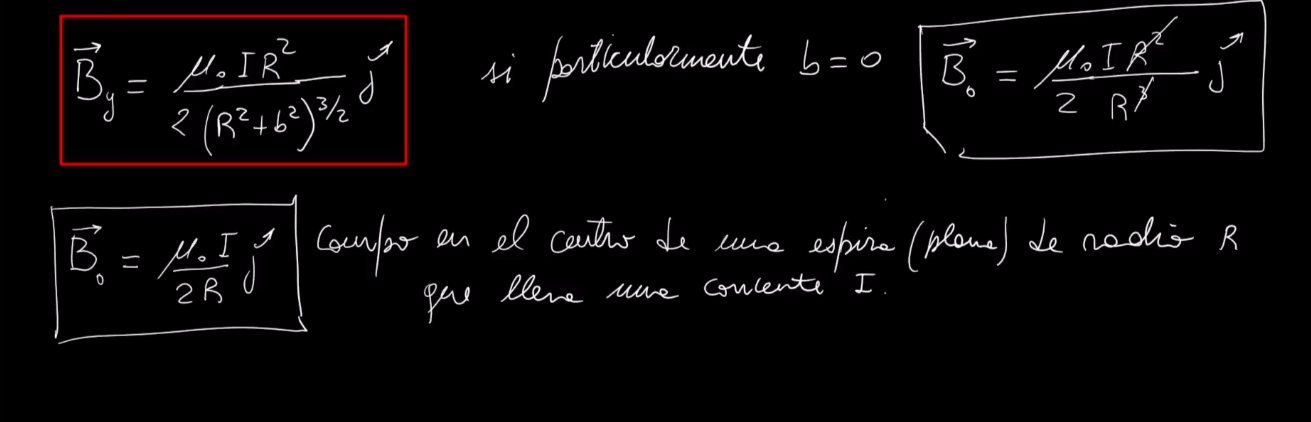 B⃗y = μ₀ I R² / 2 (R² + b²)^3/2 j⃗ si particularmente b = 0 B⃗₀ = μ₀ I R² / 2 R³ j⃗
B⃗₀ = μ₀ I / 2R j⃗ Campo en el centro de una espira (plana) de radio R
que lleva una corriente I.